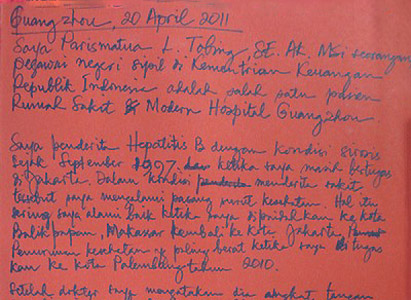 Guangzhou, 20 April 2011
Saya Parismatua L. Tobing, SE. Ak. MSi seorang
pegawai negeri sipil di Kementrian Keuangan
Republik Indonesia adalah salah satu pasien
Rumah Sakit Modern Hospital Guangzhou
Saya penderita Hepatitis B dengan kondisi sirosis
sejak September 1997. ketika saya masih bertugas
di Jakarta. Dalam kondisi menderita sakit
tersebut saya mengalami pasang surut kesehatan. Hal itu
sering saya alami baik ketika saya dipindahkan ke kota
Balikpapan, Makassar kembali ke kota Jakarta,
Penurunan kesehatan yg paling berat ketika saya ditugas
kan ke kota Palembang tahun 2010.
Setelah dokter saya mengatakan dia angkat tangan